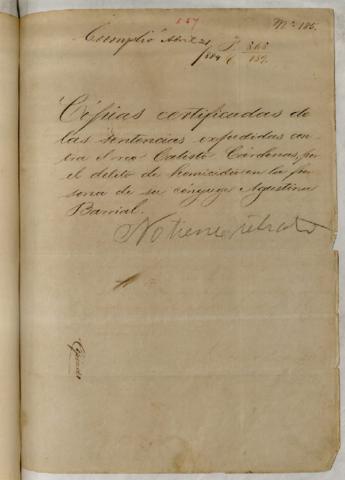 157
Nº 185.
Cumplió Abril 21/884
F. 363
C. 157.
Cópias certificadas de
las sentencias espedidas con-
tra el reo Calisto Cárdenas, por
el delito de homicidio en la per-
sona de su cónyuge Agustina
Barrial.
No tiene retrato